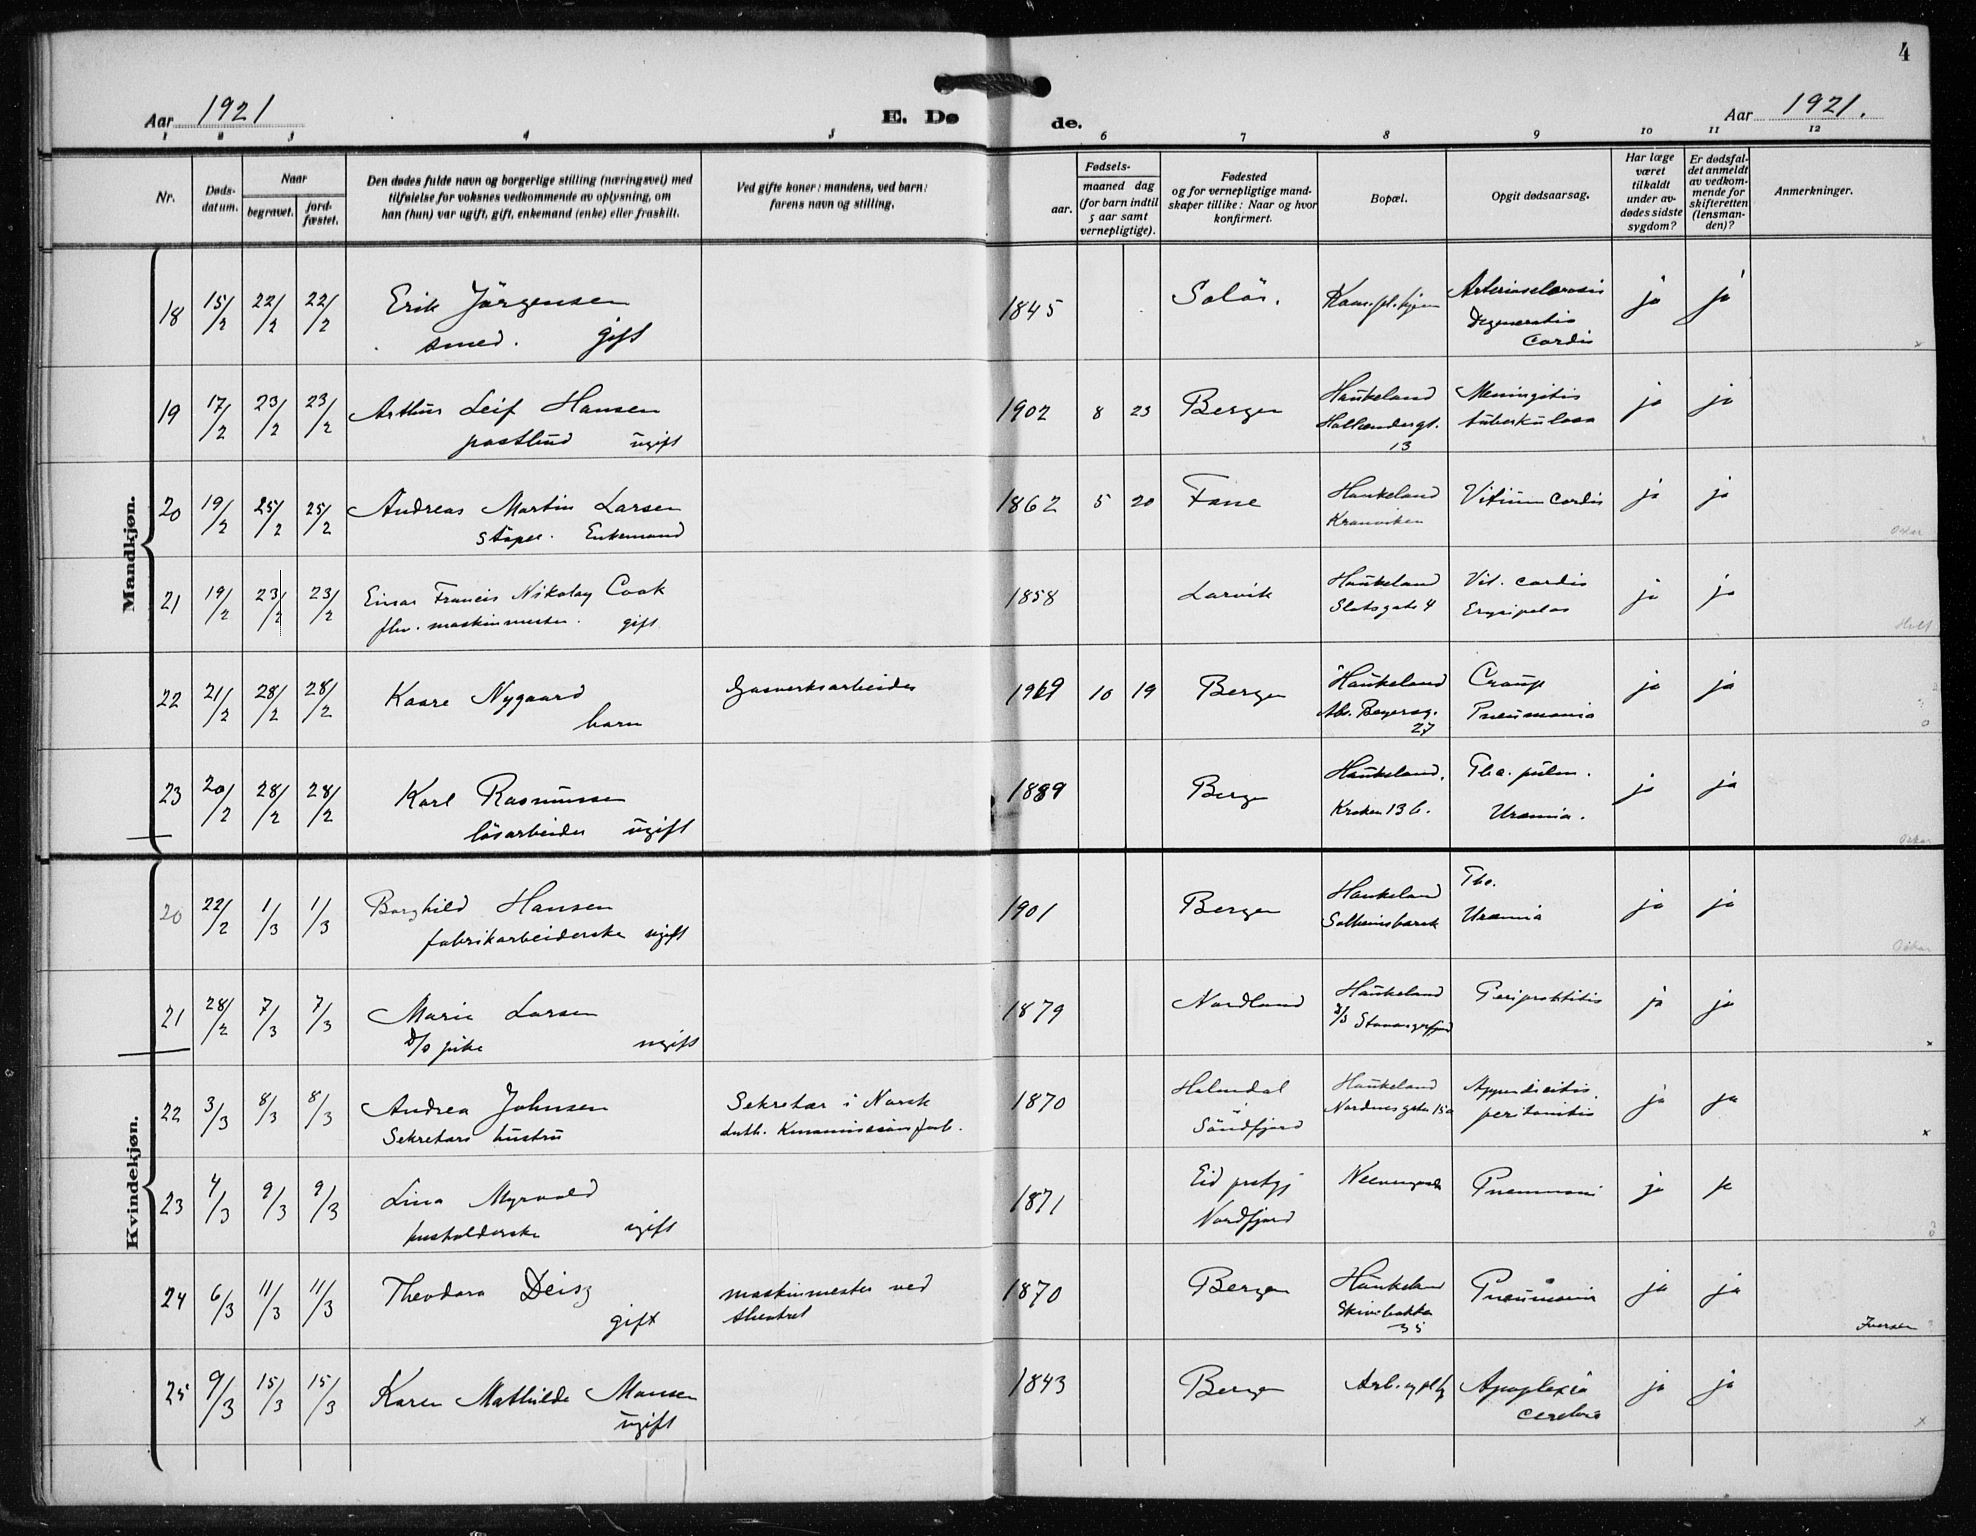 4
Aar 1921
E. Dø de.
Aar 1921.
1 2 3 4 5 6 7 8 9 10 11 12
Nr.
Døds-
datum.
Naar
begravet.
jord-
fæstet.
Den dødes fulde navn og borgerlige stilling (næringsvei) med
tilføielse for voksnes vedkommende av oplysning, om
han (hun) var ugift, gift, enkemand (enke) eller fraskilt.
Ved gifte koner: mandens, ved barn:
farens navn og stilling.
Fødsels-
aar.
maaned dag
(for barn indtil
5 aar samt
vernepligtige).
Fødested
og for vernepligtige mand-
skaper tillike: Naar og hvor
konfirmert.
Bopæl.
Opgit dødsaarsag.
Har læge
været
tilkaldt
under av-
dødes sidste
sygdom?
Er dødsfal-
det anmeldt
av vedkom-
mende for
skifteretten
(lensman-
den)?
Anmerkninger.
Mandkjøn.
18 15/2 22/2 22/2 Erik Jörgensen 1845 Solör. Arteriosclerosis ja ja
smed. gift Degeneratio
Cordis
19 17/2 23/2 23/2 Arthur Leif Hansen 1902 8 23 Bergen Haukeland Meningitis ja ja
postbud ugift Hollændergt. tuberkulosa
13
20 19/2 25/2 25/2 Andreas Martin Larsen 1862 5 20 Fane Haukeland Vitium cordis ja ja
Enkemand Kranviken
Oskar
21 19/2 23/2 23/2 Einar Francis Nikolay Cook 1858 Larvik Haukeland Vit. cordis ja ja
fhv. maskinmester. gift Slotsgate 4 Erysipelas
22 21/2 28/2 28/2 Kaare Nygaard Gasverksarbeider 1919 10 19 Bergen Haukeland Croup ja ja
barn Abs. Beyersg. Pneumonia
27
23 20/2 28/2 28/2 Karl Rasmussen 1889 Bergen Haukeland. Tbc. pulm. ja ja
lösarbeider ugift Kroken 13 b. Uræmia.
Oskar
Kvindekjøn.
20 22/2 1/3 1/3 Borghild Hansen 1901 Bergen Haukeland Tbc. ja ja
fabrikarbeiderske ugift Solheimsbarak Uræmia
Oskar
21 28/2 7/3 7/3 Marie Larsen 1879 Nordland Haukeland Periproktitis ja ja
D/S pike ugift D/S Stavangerfjord
22 3/3 8/3 8/3 Andrea Johnsen Sekretær i Norsk 1870 Haukeland Appendicitis. ja ja
Sekretærs hustru luth. Kinamissionsforb. Söndfjord Nordnesgaten 15a peritonitis
23 4/3 9/3 9/3 Lina Myrvold 1871 Eid prstgj Neevengaard Pneumoni ja ja
husholderske ugift Nordfjord
24 6/3 11/3 11/3 Theodora Deisz maskinmester ved 1870 Bergen Haukeland Pneumonia ja ja
gift theatret Skivebakken
35
Iversen
25 9/3 15/3 15/3 Karen Mathilde Monsen 1843 Bergen Apoplexia ja ja
ugift cerebri